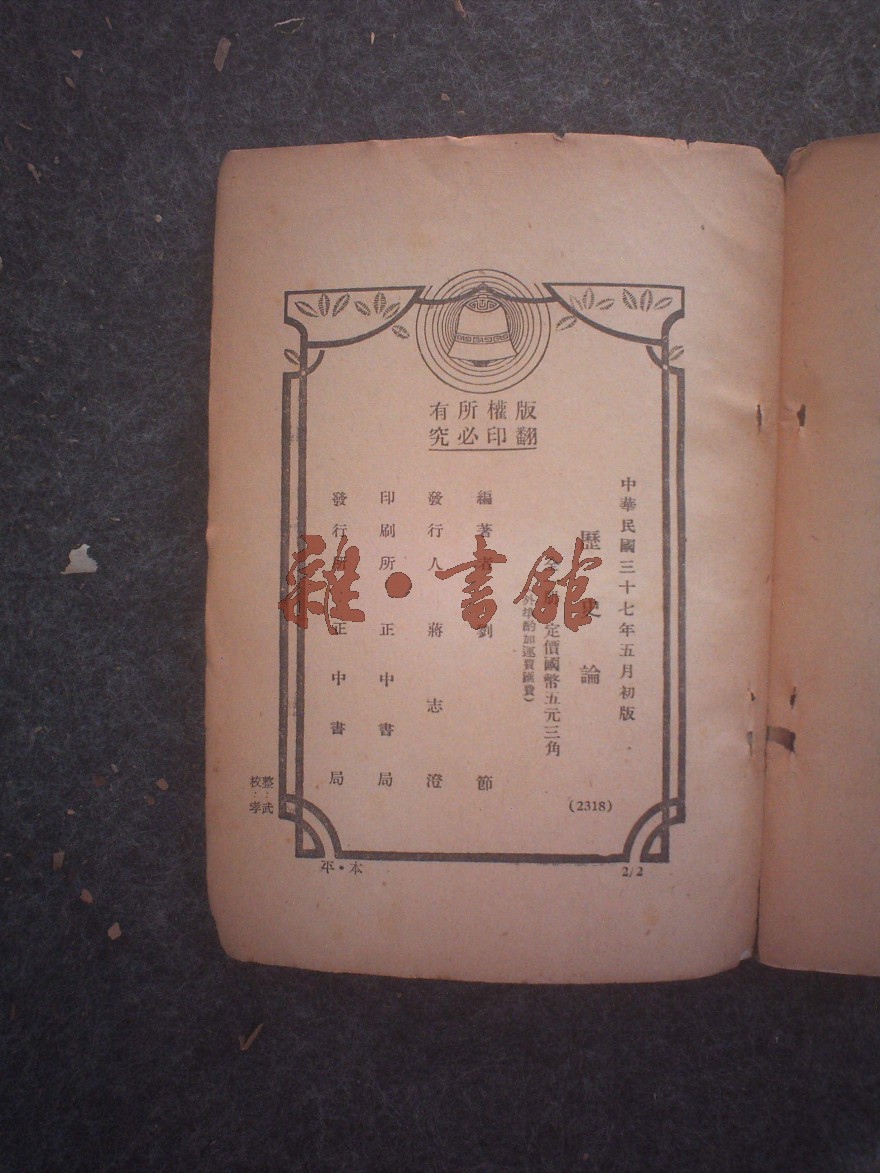 版權所有
翻印必究
中華民國三十七年五月初版
歷史論
全一冊 定價國幣五元三角
(外埠酌加運費匯費)
(2318)
編著者 劉節
發行人 蔣志澄
印刷所 正中書局
發行所 正中書局
整：武
校：孝
本・平
2/2
雜・書館